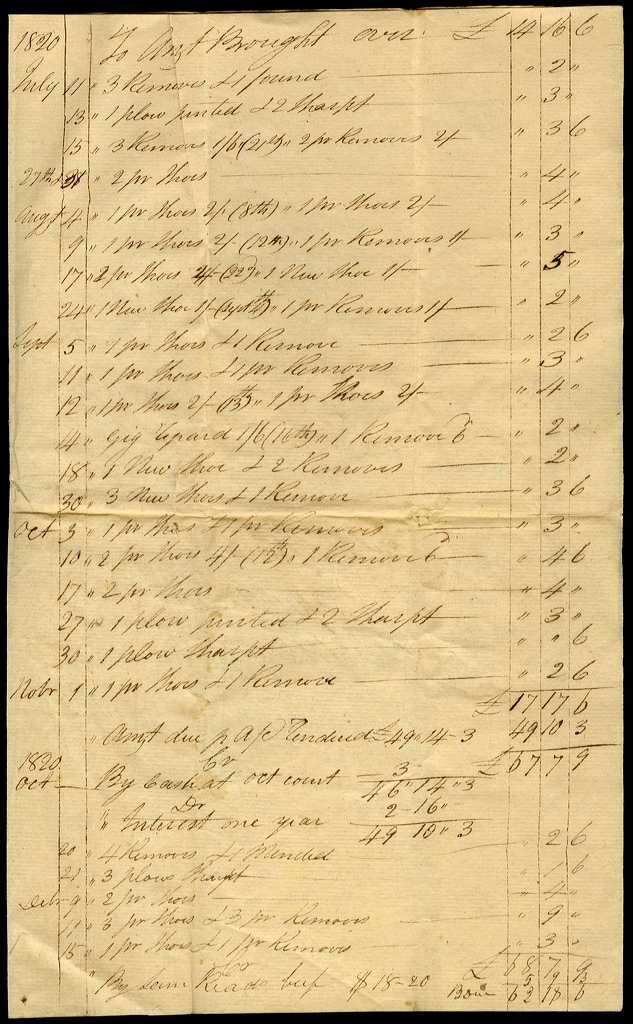 1820 To Amt Brought over £ 14 16 6
July 11 " 3 Removes & 1 found " 2 "
13 " 1 plow pinted & 2 Sharpt " 3 "
15 " 3 Removes 1/6 (21st) " 2 pr Removes 2/ " 3 6
27th & 31 " 2 pr Shoes " 4 "
Augt 4 " 1 pr Shoes 2/ (8th) " 1 pr Shoes 2/ " 4 "
9 " 1 pr Shoes 2/ (12th) " 1 pr Removes 1/ " 3 "
17 " 2 pr Shoes 4/ (22) " 1 New Shoe 1/ " 5 "
24 " 1 New Shoe 1/ " 1 pr Removes 1/ " 2 "
Sept 5 " 1 pr Shoes & 1 Remove " 2 6
11 " 1 pr Shoes & 1 pr Removes " 3 "
12 " 1 pr Shoes 2/ (13th) " 1 pr Shoes 2/ " 4 "
14 " Gig Repard 1/6 (16th) " 1 Remove 6 " 2 "
18 " 1 New Shoe & 2 Removes " 2 "
30 " 3 New Shoes & 1 Remove " 3 6
Oct 3 " 1 pr Shoes & 1 pr Removes " 3 "
10 " 2 pr Shoes 4/ (12th) " 1 Remove 6 " 4 6
17 " 2 pr Shoes " 4 "
27 " 1 plow pinted & 2 Sharpt " 3 "
30 " 1 plow Sharpt " " 6
Nobr 1 " 1 pr Shoes & 1 Remove " 2 6
£ 17 17 6
" Amt due p a/c Rendered £49 " 14 - 3 49 10 3
1820 Cr £ 67 7 9
Oct By Cash at Oct court 3
46 " 14 " 3
Dr 2 - 16 "
" Interest one year 49 10 " 3
20 " 4 Removes & 1 Mended " 2 6
21 " 3 plows Sharpt " 1 6
Debr 9 " 2 pr Shoes " 4 "
11 " 3 pr Shoes & 3 pr Removes " 9 "
15 " 1 pr Shoes & 1 pr Removes " 3 "
Cr £ 68 7 9
" By Sam Reads beef $18-20 5 9 3
62 18 6